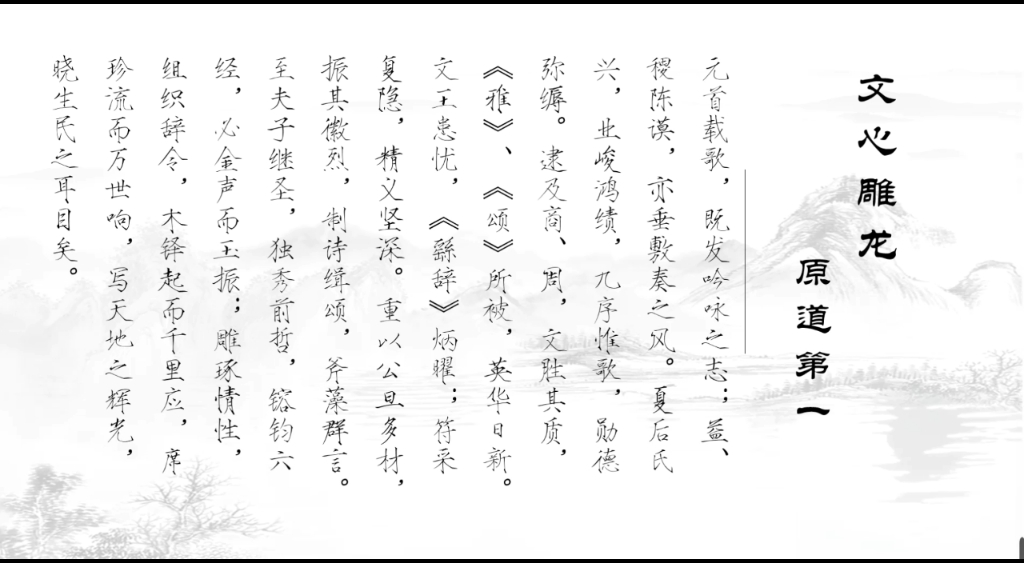 文心雕龙
原道第一
元首载歌，既发吟咏之志；益、
稷陈谟，亦垂敷奏之风。夏后氏
兴，业峻鸿绩，九序惟歌，勋德
弥缛。逮及商、周，文胜其质，
《雅》、《颂》所被，英华日新。
文王患忧，《繇辞》炳曜；符采
复隐，精义坚深。重以公旦多材，
振其徽烈，制诗缉颂，斧藻群言。
至夫子继圣，独秀前哲，镕钧六
经，必金声而玉振；雕琢情性，
组织辞令，木铎起而千里应，席
珍流而万世响，写天地之辉光，
晓生民之耳目矣。